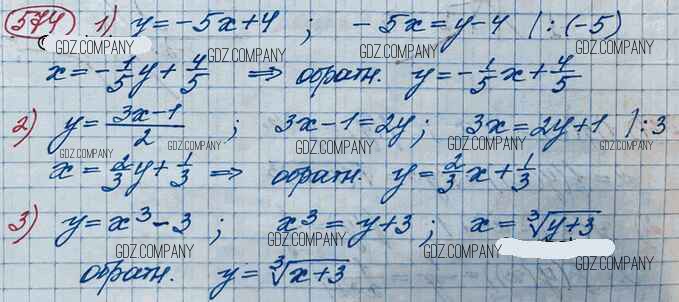 574 1) y=-5x+4 ; -5x=y-4 |:(-5)
GDZ.COMPANY GDZ.COMPANY GDZ.COMPANY GDZ.COMPANY
x=-1/5y+4/5 ⇒ обратн. y=-1/5x+4/5
2) y=(3x-1)/2 ; 3x-1=2y; 3x=2y+1 |:3
GDZ.COMPANY GDZ.COMPANY GDZ.COMPANY GDZ.COMPANY
x=2/3y+1/3 ⇒ обратн. y=2/3x+1/3
3) y=x³-3 ; x³=y+3 ; x=∛(y+3)
GDZ.COMPANY GDZ.COMPANY GDZ.COMPANY GDZ.COMPANY
обратн. y=∛(x+3)